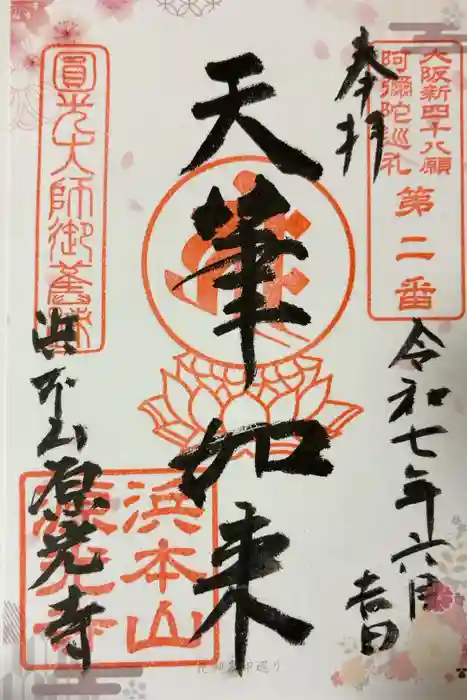 大阪新四十八願
阿彌陀巡礼
第二番
奉拝
令和七年六月
吉日
天筆如来
圓光大師御舊跡
浜本山原光寺
浜本山
源光寺
花御朱印巡り